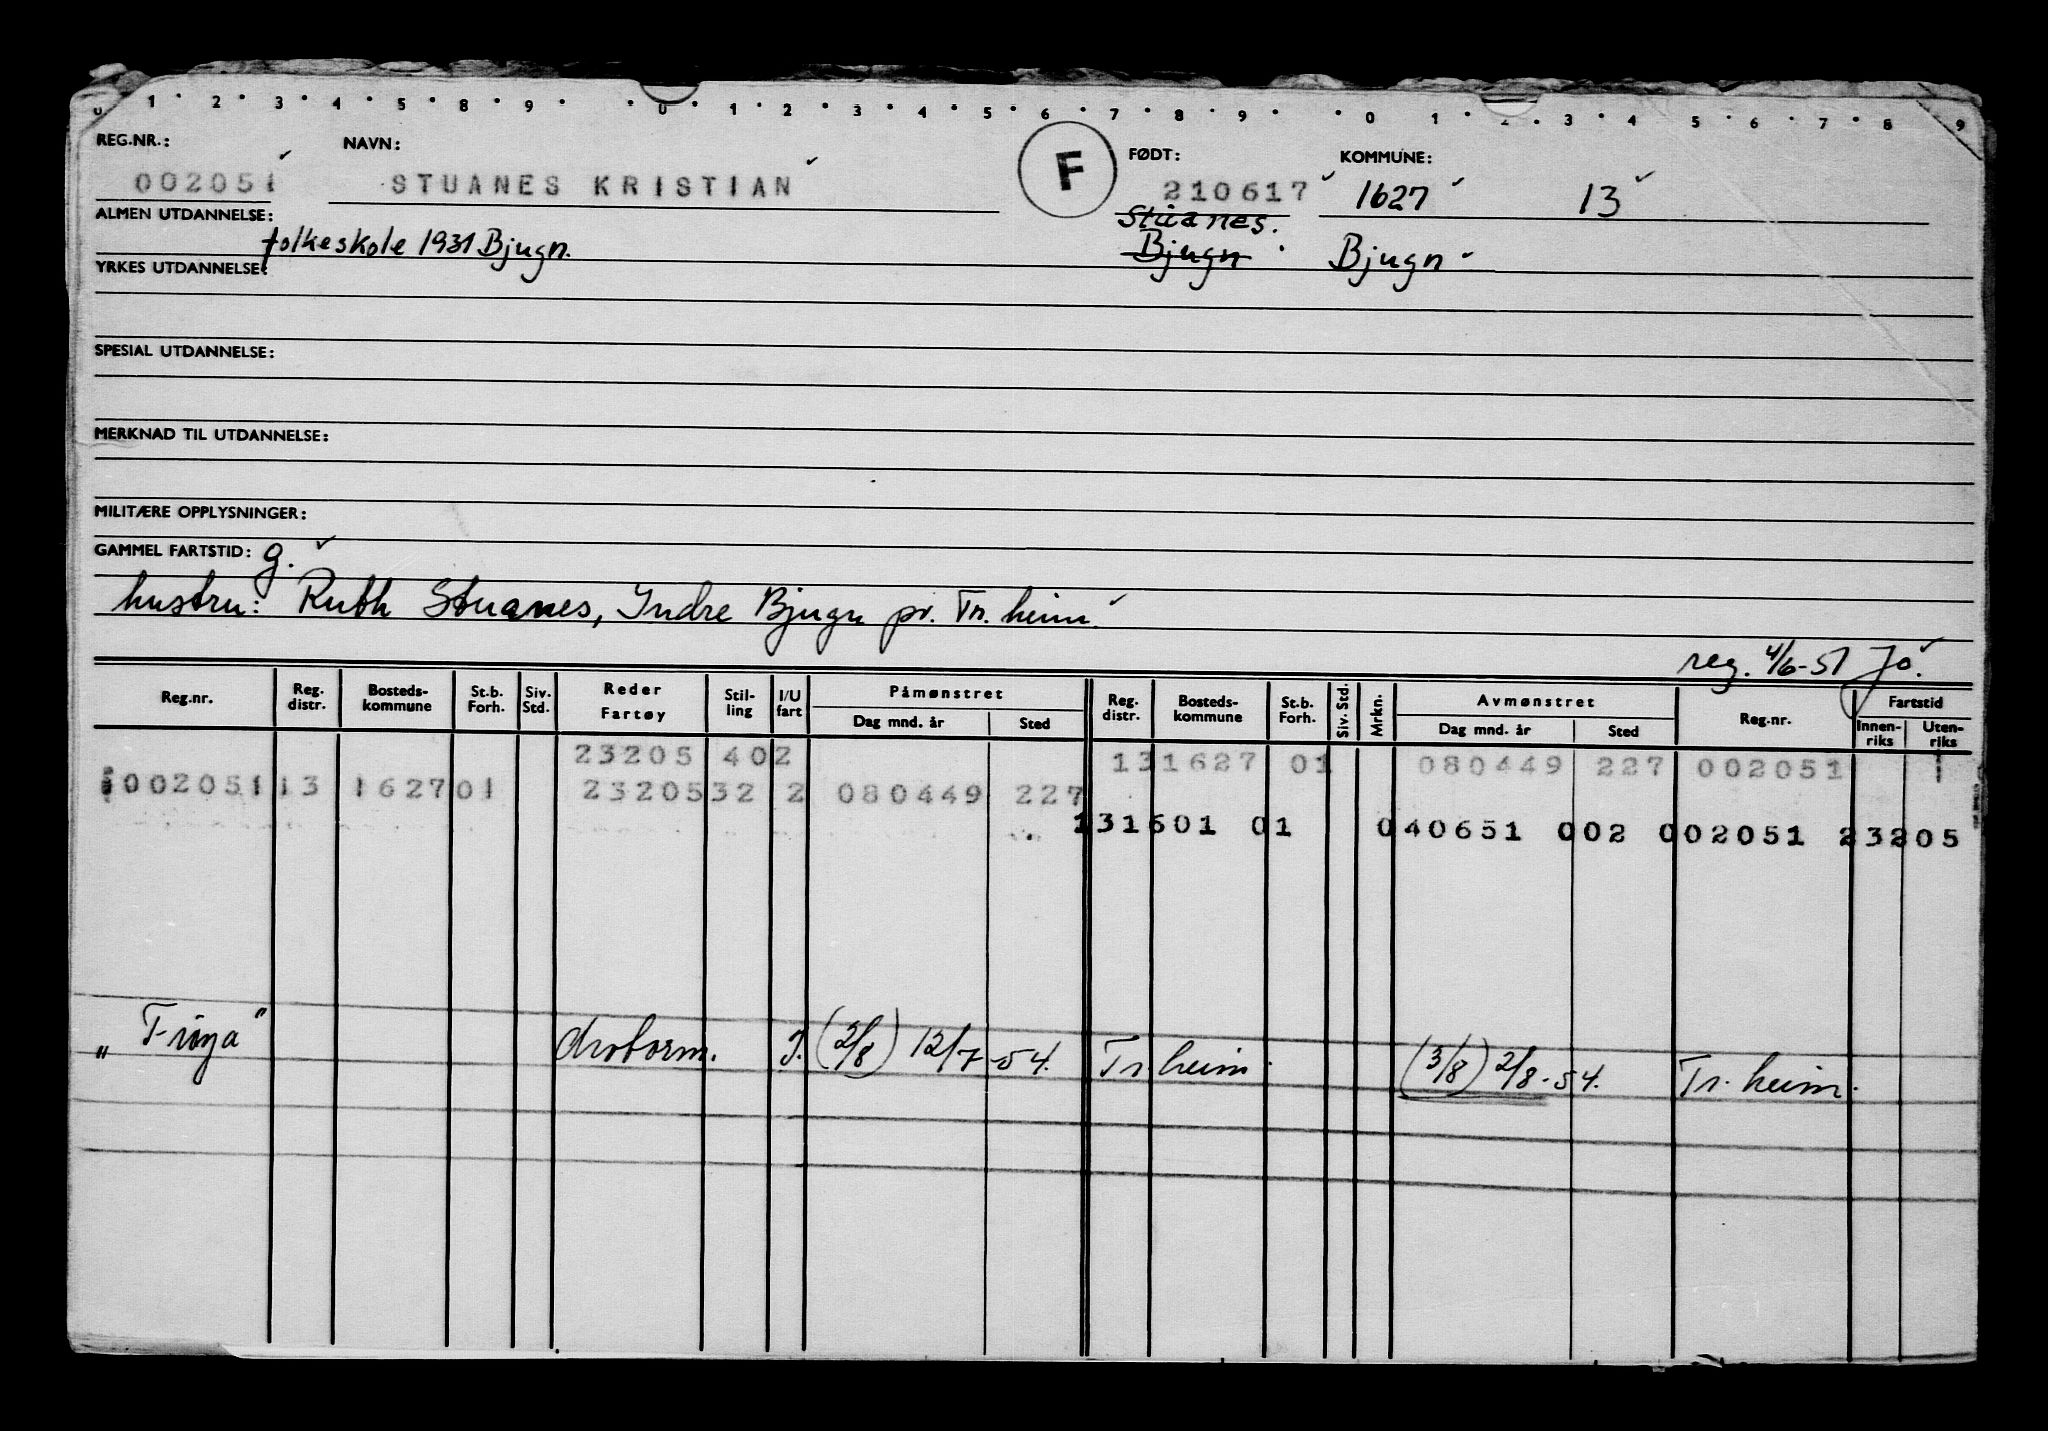 0 1 2 3 4 5 8 9 0 1 2 3 4 5 6 7 8 9 0 1 2 3 4 5 6 7 8 9
REG.NR.: NAVN: F FØDT: KOMMUNE:
002051 STUANES KRISTIAN 210617 1627 13
ALMEN UTDANNELSE: Stuanes.
folkeskole 1931 Bjugn. Bjugn Bjugn
YRKES UTDANNELSE:
SPESIAL UTDANNELSE:
MERKNAD TIL UTDANNELSE:
MILITÆRE OPPLYSNINGER:
GAMMEL FARTSTID: g.
hustru: Ruth Stuanes, Indre Bjugn pr. Tr.heim.
reg. 4/6-51 Jo.
Reg.nr. Reg. distr. Bosteds-kommune St.b. Forh. Siv. Std. Reder Fartøy Stil-ling I/U fart Påmønstret Dag mnd. år Sted Reg. distr. Bosteds-kommune St.b. Forh. Siv. Std. Mrkn. Avmønstret Dag mnd. år Sted Reg.nr. Fartstid Innen-riks Uten-riks
23205 402 131627 01 080449 227 002051
002051 13 1627 01 23205 32 2 080449 227
131601 01 040651 002 002051 23205
"Frøya" I. (2/8) 12/7-54. Tr.heim. (3/8) 2/8-54. Tr.heim.